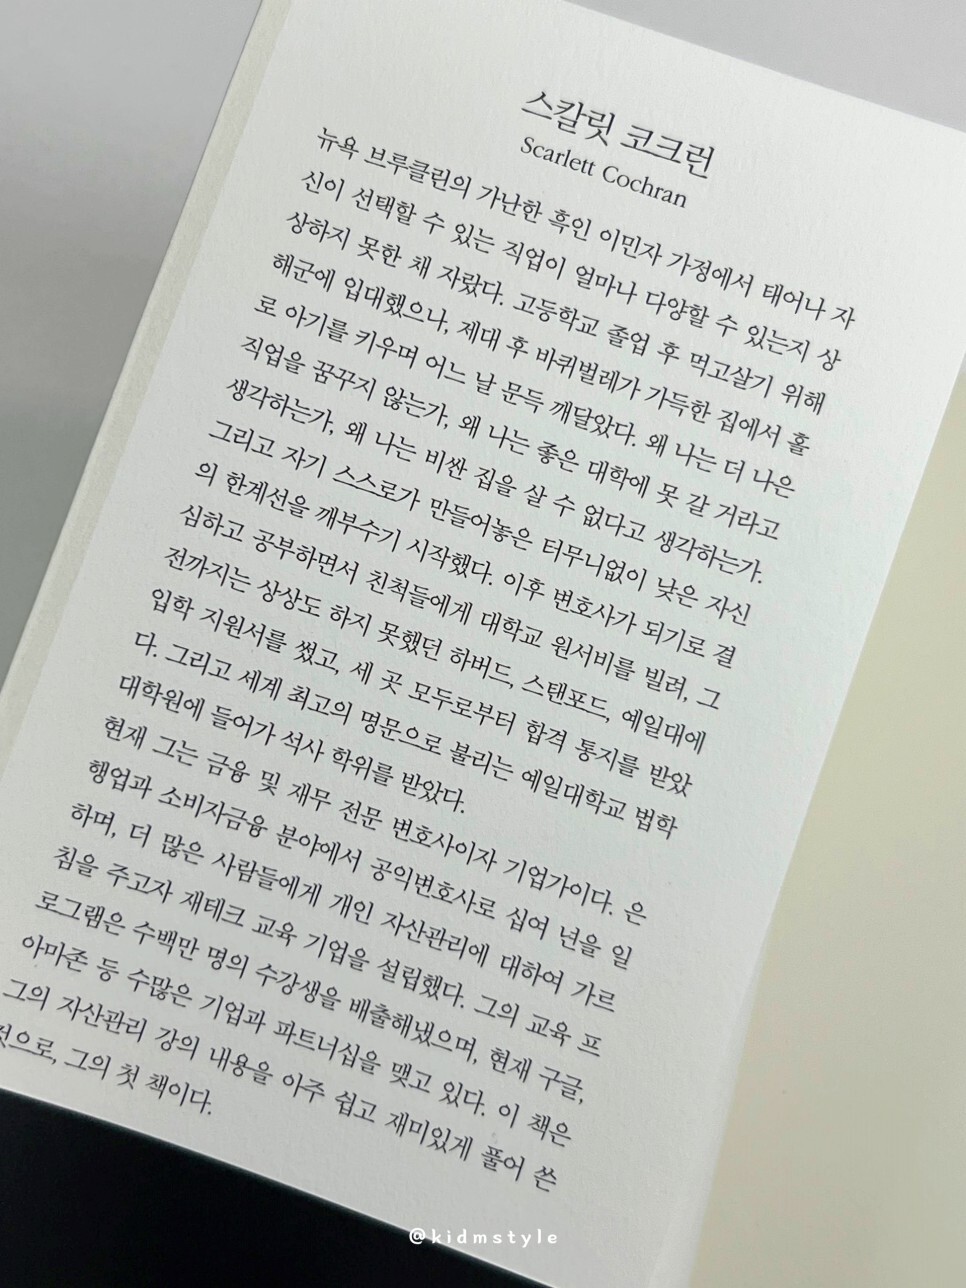 스칼릿 코크런
Scarlett Cochran
뉴욕 브루클린의 가난한 흑인 이민자 가정에서 태어나 자
신이 선택할 수 있는 직업이 얼마나 다양할 수 있는지 상
상하지 못한 채 자랐다. 고등학교 졸업 후 먹고살기 위해
해군에 입대했으나, 제대 후 바퀴벌레가 가득한 집에서 홀
로 아기를 키우며 어느 날 문득 깨달았다. 왜 나는 더 나은
직업을 꿈꾸지 않는가, 왜 나는 좋은 대학에 못 갈 거라고
생각하는가, 왜 나는 비싼 집을 살 수 없다고 생각하는가.
그리고 자기 스스로가 만들어놓은 터무니없이 낮은 자신
의 한계선을 깨부수기 시작했다. 이후 변호사가 되기로 결
심하고 공부하면서 친척들에게 대학교 원서비를 빌려, 그
전까지는 상상도 하지 못했던 하버드, 스탠포드, 예일대에
입학 지원서를 썼고, 세 곳 모두로부터 합격 통지를 받았
다. 그리고 세계 최고의 명문으로 불리는 예일대학교 법학
대학원에 들어가 석사 학위를 받았다.
현재 그는 금융 및 재무 전문 변호사이자 기업가이다. 은
행업과 소비자금융 분야에서 공익변호사로 십여 년을 일
하며, 더 많은 사람들에게 개인 자산관리에 대하여 가르
침을 주고자 재테크 교육 기업을 설립했다. 그의 교육 프
로그램은 수백만 명의 수강생을 배출해냈으며, 현재 구글,
아마존 등 수많은 기업과 파트너십을 맺고 있다. 이 책은
그의 자산관리 강의 내용을 아주 쉽고 재미있게 풀어 쓴
것으로, 그의 첫 책이다.
@kidmstyle